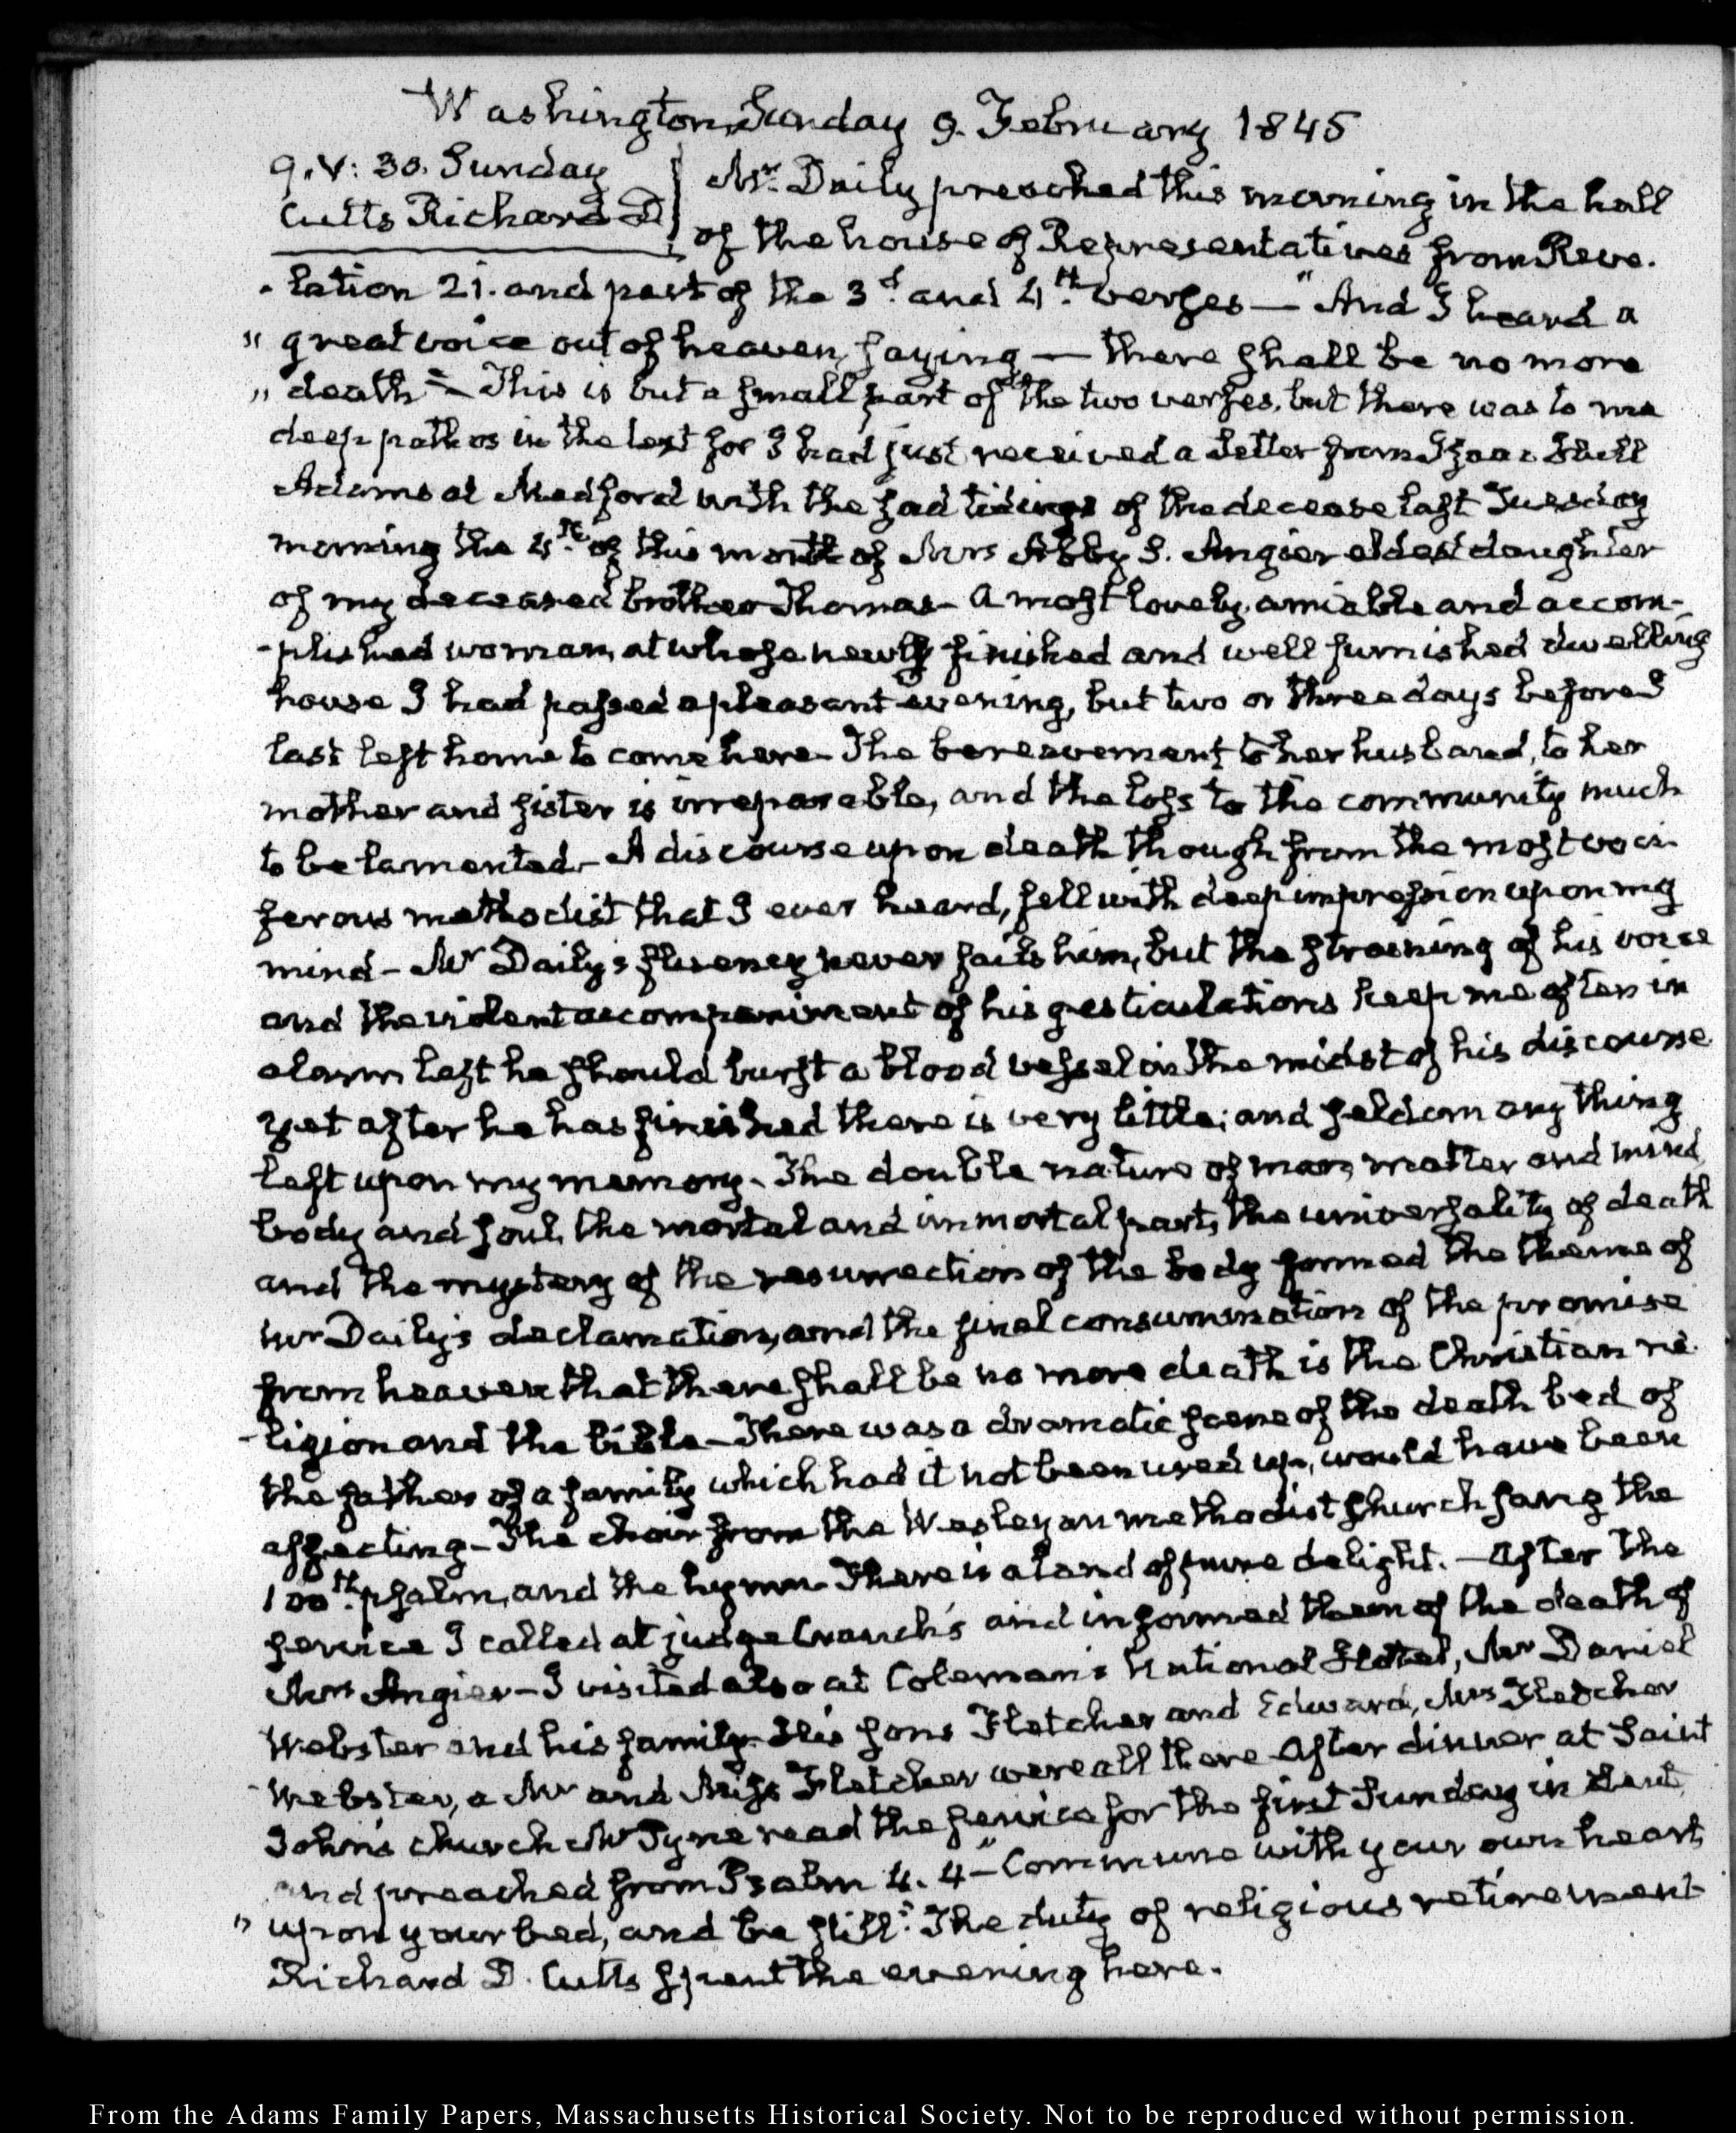 Washington, Sunday 9. February 1845
9. V: 30. Sunday
Cutts Richard D
Mr. Daily preached this morning in the hall
of the house of Representatives from Reve.
-lation 21. and part of the 3d. and 4th. verses — "And I heard a
" great voice out of heaven, saying — there shall be no more
" death" — This is but a small part of the two verses, but there was to me
deep pathos in the text for I had just received a Letter from Isaac Hull
Adams at Medford with the sad tidings of the decease last Tuesday
morning the 4th. of this month of Mrs Abby S. Angier eldest daughter
of my deceased brother Thomas — A most lovely, amiable and accom-
-plished woman, at whose newly finished and well furnished dwelling
house I had passed a pleasant evening, but two or three days before I
last left home to come here. The bereavement to her husband, to her
mother and sister is irreparable, and the loss to the community much
to be lamented — A discourse upon death though from the most voci-
ferous methodist that I ever heard, fell with deep impression upon my
mind — Mr Daily's fluency never fails him, but the straining of his voice
and the violent accompaniment of his gesticulations keep me often in
alarm lest he should burst a blood vessel in the midst of his discourse
yet after he has finished there is very little; and seldom any thing
left upon my memory. The double nature of man, matter and mind,
body and soul, the mortal and immortal part, the universality of death
and the mystery of the resurrection of the body formed the theme of
Mr Daily's declamation, and the final consummation of the promise
from heaven that there shall be no more death is the Christian re.
-ligion and the bible — There was a dramatic scene of the death bed of
the father of a family which had it not been used up, would have been
affecting — The choir from the Wesleyan methodist church sang the
100th. psalm, and the hymn. There is a land of pure delight. — After the
service I called at judge Cranch's and informed them of the death of
Mrs Angier — I visited also at Coleman's National Hotel, Mr Daniel
Webster and his family. His sons Fletcher and Edward, Mrs Fletcher
Webster, a Mr and Miss Fletcher were all there After dinner at Saint
John's church Mr Tyng read the service for the first Sunday in Lent,
and preached from Psalm 4. 4 — "Commune with your own heart
" upon your bed, and be still." The duty of religious retirement
Richard D. Cutts spent the evening here.
From the Adams Family Papers, Massachusetts Historical Society. Not to be reproduced without permission.